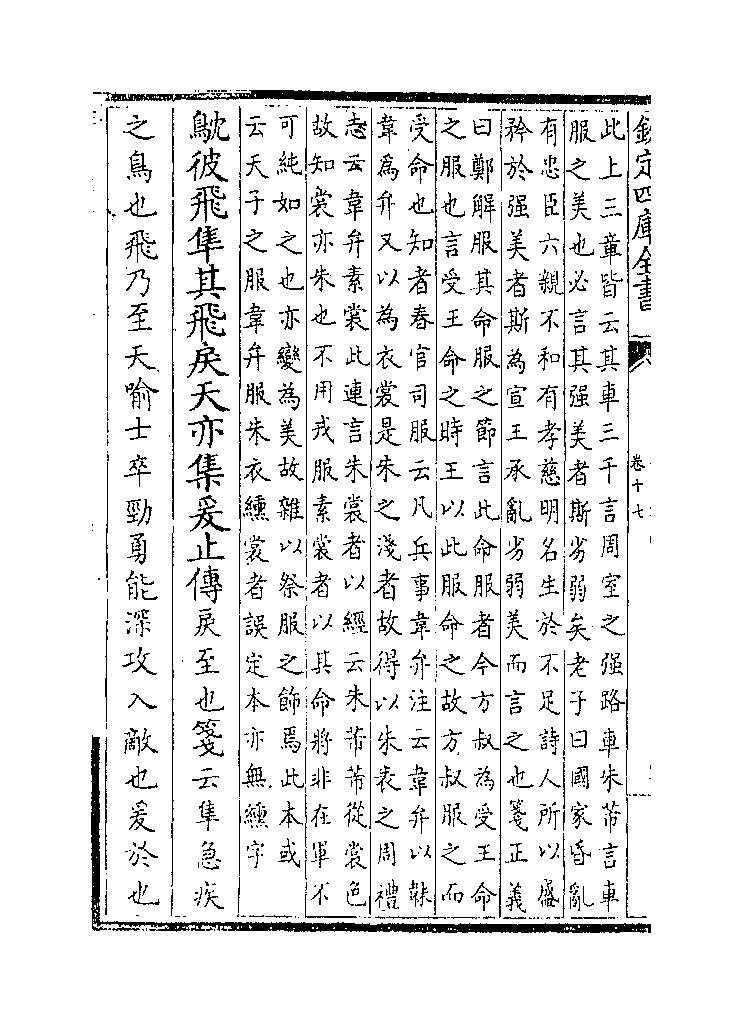 欽定四庫全書
卷十七
此上三章皆云其車三千言周室之强路車朱芾言車
服之美也必言其强美者斯劣弱矣老子曰國家昏亂
有忠臣六親不和有孝慈明名生於不足詩人所以盛
矜於强美者斯為宣王承亂劣弱美而言之也箋正義
曰鄭解服其命服之節言此命服者今方叔為受王命
之服也言受王命之時王以此服命之故方叔服之而
受命也知者春官司服云凡兵事韋弁注云韋弁以韎
韋為弁又以為衣裳是朱之淺者故得以朱表之周禮
志云韋弁素裳此連言朱裳者以經云朱芾芾從裳色
故知裳亦朱也不用戎服素裳者以其命將非在軍不
可純如之也亦變為美故雜以祭服之飾焉此本或
云天子之服韋弁服朱衣纁裳者誤定本亦無纁字
鴥彼飛隼其飛戾天亦集爰止傳戾至也箋云隼急疾
之鳥也飛乃至天喻士卒勁勇能深攻入敵也爰於也